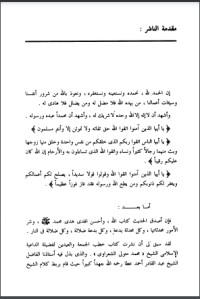 مقدمة الناشر :
إن الحمد لله ، نحمده ونستعينه ونستغفره ، ونعوذ بالله من شرور أنفسنا
وسيئات أعمالنا ، من يهده الله فلا مضل له ومن يضلل فلا هادي له .
وأشهد أن لا إله إلا الله وحده لا شريك له ، وأشهد أن محمداً عبده ورسوله .
﴿ يا أيها الذين آمنوا اتقوا الله حق تقاته ولا تموتن إلا وأنتم مسلمون ﴾
﴿ يا أيها الناس اتقوا ربكم الذي خلقكم من نفس واحدة وخلق منها زوجها
وبث منهما رجالاً كثيراً ونساء واتقوا الله الذي تساءلون به والأرحام إن الله كان
عليكم رقيباً ﴾ .
﴿ يا أيها الذين آمنوا اتقوا الله وقولوا قولاً سديداً ، يصلح لكم أعمالكم
ويغفر لكم ذنوبكم ومن يطع الله ورسوله فقد فاز فوزاً عظيماً ﴾
أما بعد :
فإن أصدق الحديث كتاب الله ، وأحسن الهدى هدى محمد ﷺ ، وشر
الأمور محدثاتها ، وكل محدثة بدعة ، وكل بدعة ضلالة ، وكل ضلالة في النار .
لقد سبق لي أن نشرت كتاب خطب الجمعة والعيدين لفضيلة الداعية
الإسلامي الشيخ « محمد متولي الشعراوي » . والذي بذل فيه أستاذنا الفاضل
الشيخ عبد القادر أحمد عطا رحمه الله جهداً كبيراً حيث قام بربط كلام الشيخ